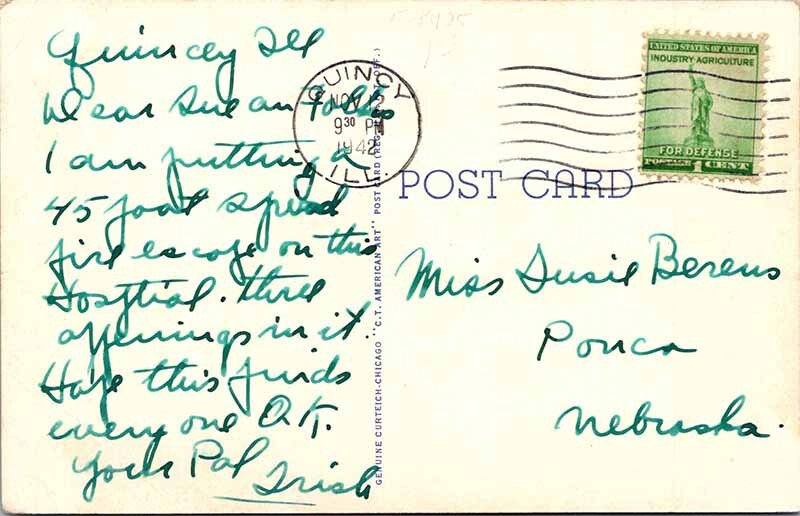 Quincey Ill
Dear Sue an Folks
I am putting a
45 foot spread
fire escape on this
Hosptial. three
oppenings in it.
Hope this finds
every one O.K.
Your Pal
Irish
QUINCY
NOV 2
9 30 PM
1942
ILL.
GENUINE CURTEICH-CHICAGO "C.T. AMERICAN ART" POST CARD (REG. U.S. PAT. OFF.)
UNITED STATES OF AMERICA
INDUSTRY AGRICULTURE
FOR DEFENSE
POSTAGE 1 CENT
POST CARD
Miss Susie Berens
Ponca
Nebraska.